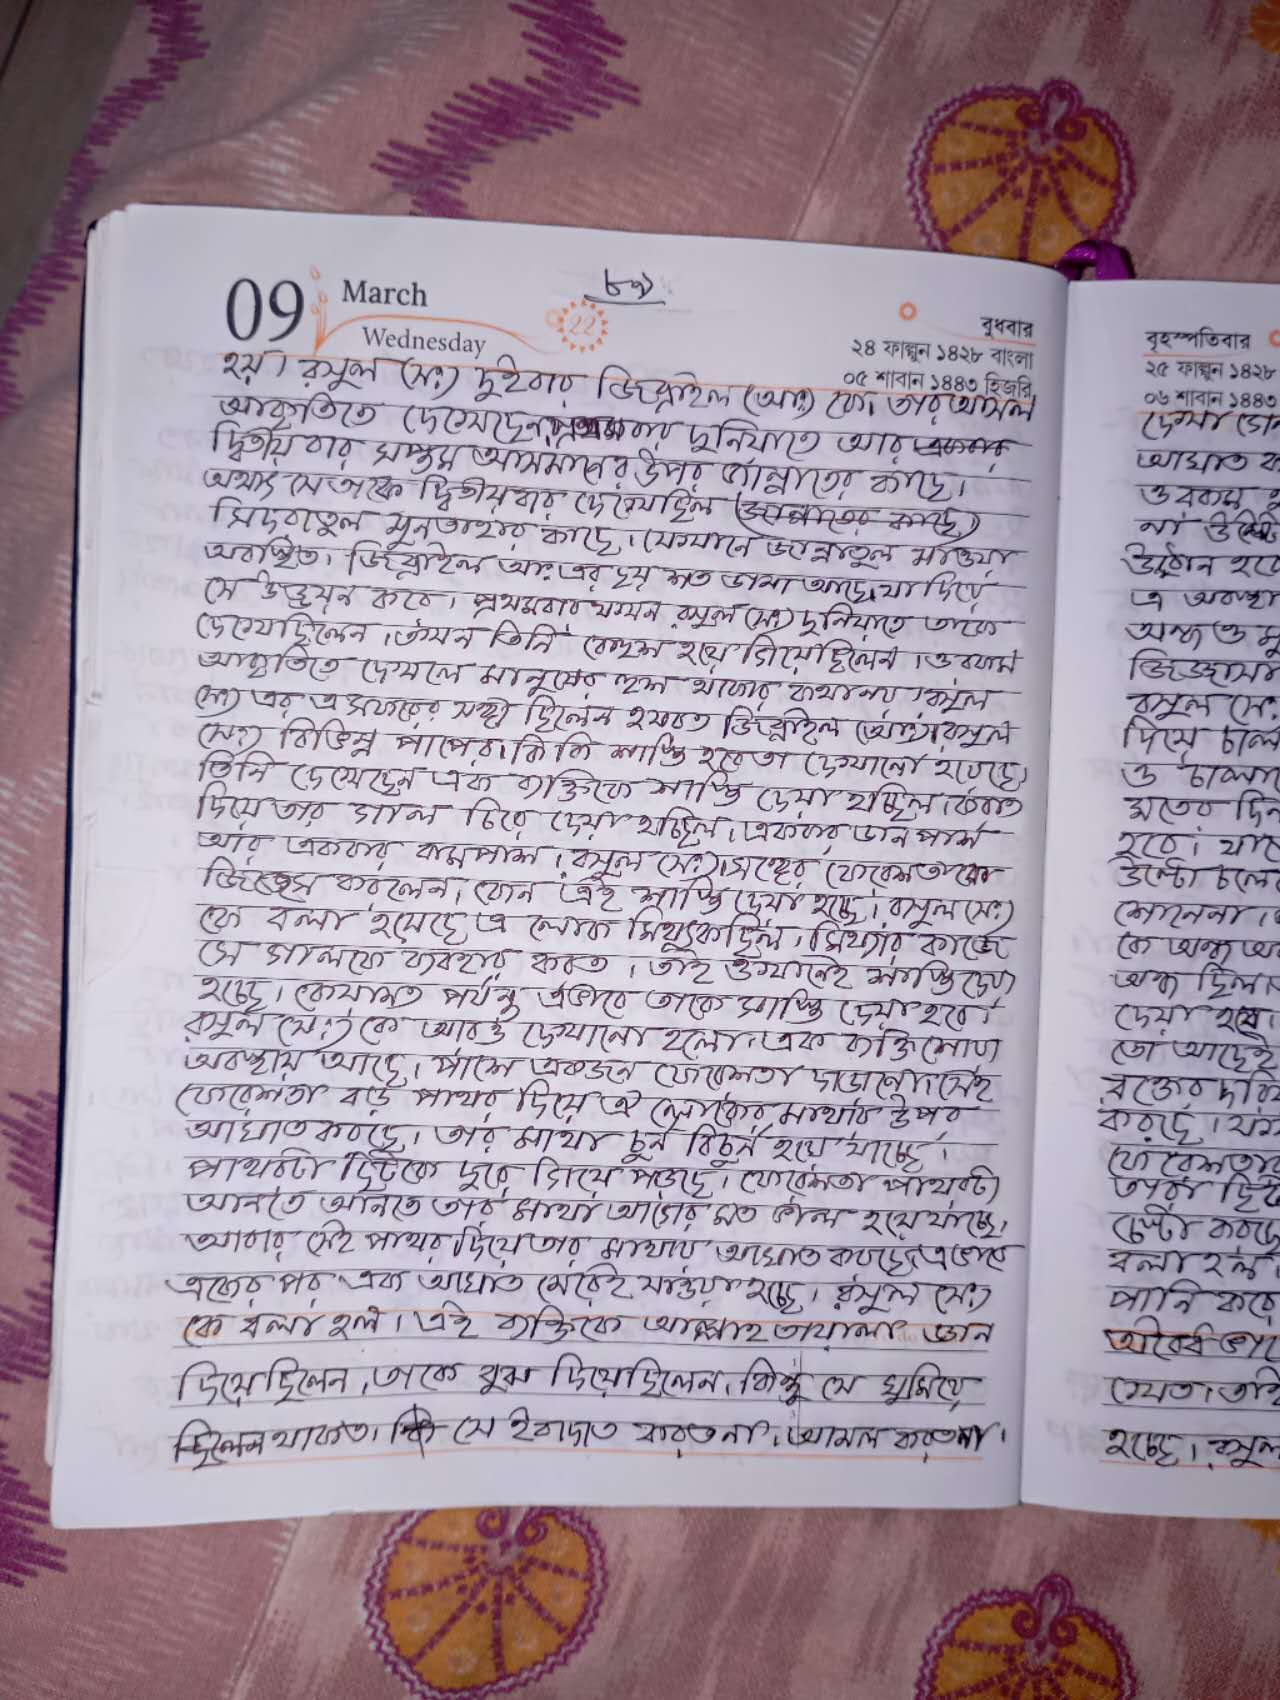 09 March
Wednesday
22
৮৯
বুধবার
২৪ ফাল্গুন ১৪২৮ বাংলা
০৫ শাবান ১৪৪৩ হিজরি
হয়। রসুল (সঃ) দুইবার জিব্রাইল (আঃ) কে তার আসল
আকৃতিতে দেখেছেন প্রথমবার দুনিয়াতে আর একবার
দ্বিতীয় বার সপ্তম আসমানের উপর জান্নাতের কাছে।
অথাৎ সে তাকে দ্বিতীয়বার দেখেছিল (জান্নাতের কাছে)
সিদরাতুল মুনতাহার কাছে। যেখানে জান্নাতুল মাওয়া
অবস্থিত। জিব্রাইল আঃ এর ছয় শত ডানা আছে যা দিয়ে
সে উড্ডয়ন করে। প্রথমবার যখন রসুল (সঃ) দুনিয়াতে তাকে
দেখেছিলেন। তখন তিনি বেহুশ হয়ে গিয়েছিলেন। ওরকম
আকৃতিতে দেখলে মানুষের হুশ থাকার কথা নয়। রসুল
(সঃ) এর এ সফরের সঙ্গী ছিলেন হযরত জিব্রাইল (আঃ)। রসুল
(সঃ) বিভিন্ন পাপের কি কি শাস্তি হবে তা দেখানো হয়েছে।
তিনি দেখেছেন এক ব্যক্তিকে শাস্তি দেয়া হচ্ছিল। করাত
দিয়ে তার গাল চিরে দেয়া হচ্ছিল। একবার ডান পাশ
আর একবার বামপাশ। রসুল (সঃ) সঙ্গের ফেরেশতাকে
জিজ্ঞেস করলেন। কেন এই শাস্তি দেয়া হচ্ছে। রসুল (সঃ)
কে বলা হয়েছে এ লোক মিথ্যুক ছিল। মিথ্যার কাজে
সে গালকে ব্যবহার করত। তাই ওখানেই শাস্তি দেয়া
হচ্ছে। কেয়ামত পর্যন্ত এভাবে তাকে শাস্তি দেয়া হবে।
রসুল (সঃ) কে আরও দেখানো হলো। এক ব্যক্তি শোয়া
অবস্থায় আছে। পাশে একজন ফেরেশতা দাড়ানো। সেই
ফেরেশতা বড় পাথর দিয়ে ঐ লোকের মাথার উপর
আঘাত করছে। তার মাথা চুর্ন বিচুর্ন হয়ে যাচ্ছে।
পাথরটা ছিটকে দুরে গিয়ে পড়ছে। ফেরেশতা পাথরটা
আনতে আনতে তার মাথা আগের মত ভাল হয়ে যাচ্ছে।
আবার সেই পাথর দিয়ে তার মাথায় আঘাত করছে। এভাবে
একের পর এক আঘাত মেরেই যাওয়া হচ্ছে। রসুল (সঃ)
কে বলা হল। এই ব্যক্তিকে আল্লাহ তায়ালা জ্ঞান
দিয়েছিলেন। তাকে বুঝ দিয়েছিলেন। কিন্তু সে ঘুমিয়ে
ছিলেন থাকত। সে ইবাদাত করতনা। আমল করতনা।
বৃহস্পতিবার
২৫ ফাল্গুন ১৪২৮
০৬ শাবান ১৪৪৩
আঘাত ক
অবস্থা
রসুল সেঃ
দিয়ে চাল
হবে।
উল্টো চলে
শোনেনা।
কে অন্ধ
অন্ধ ছিল।
দেয়া হবে।
তো আছেই
করছে।
চেষ্টা করছে
বলা হল
পানি করে
হচ্ছে। রসুল